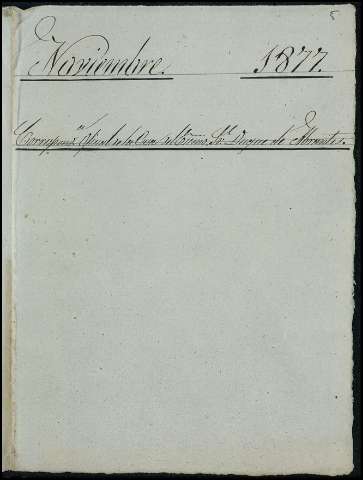 5
Noviembre. 1877.
Correspond.ª Oficial de la Casa del Excmo. Sr. Duque de Abrantes.